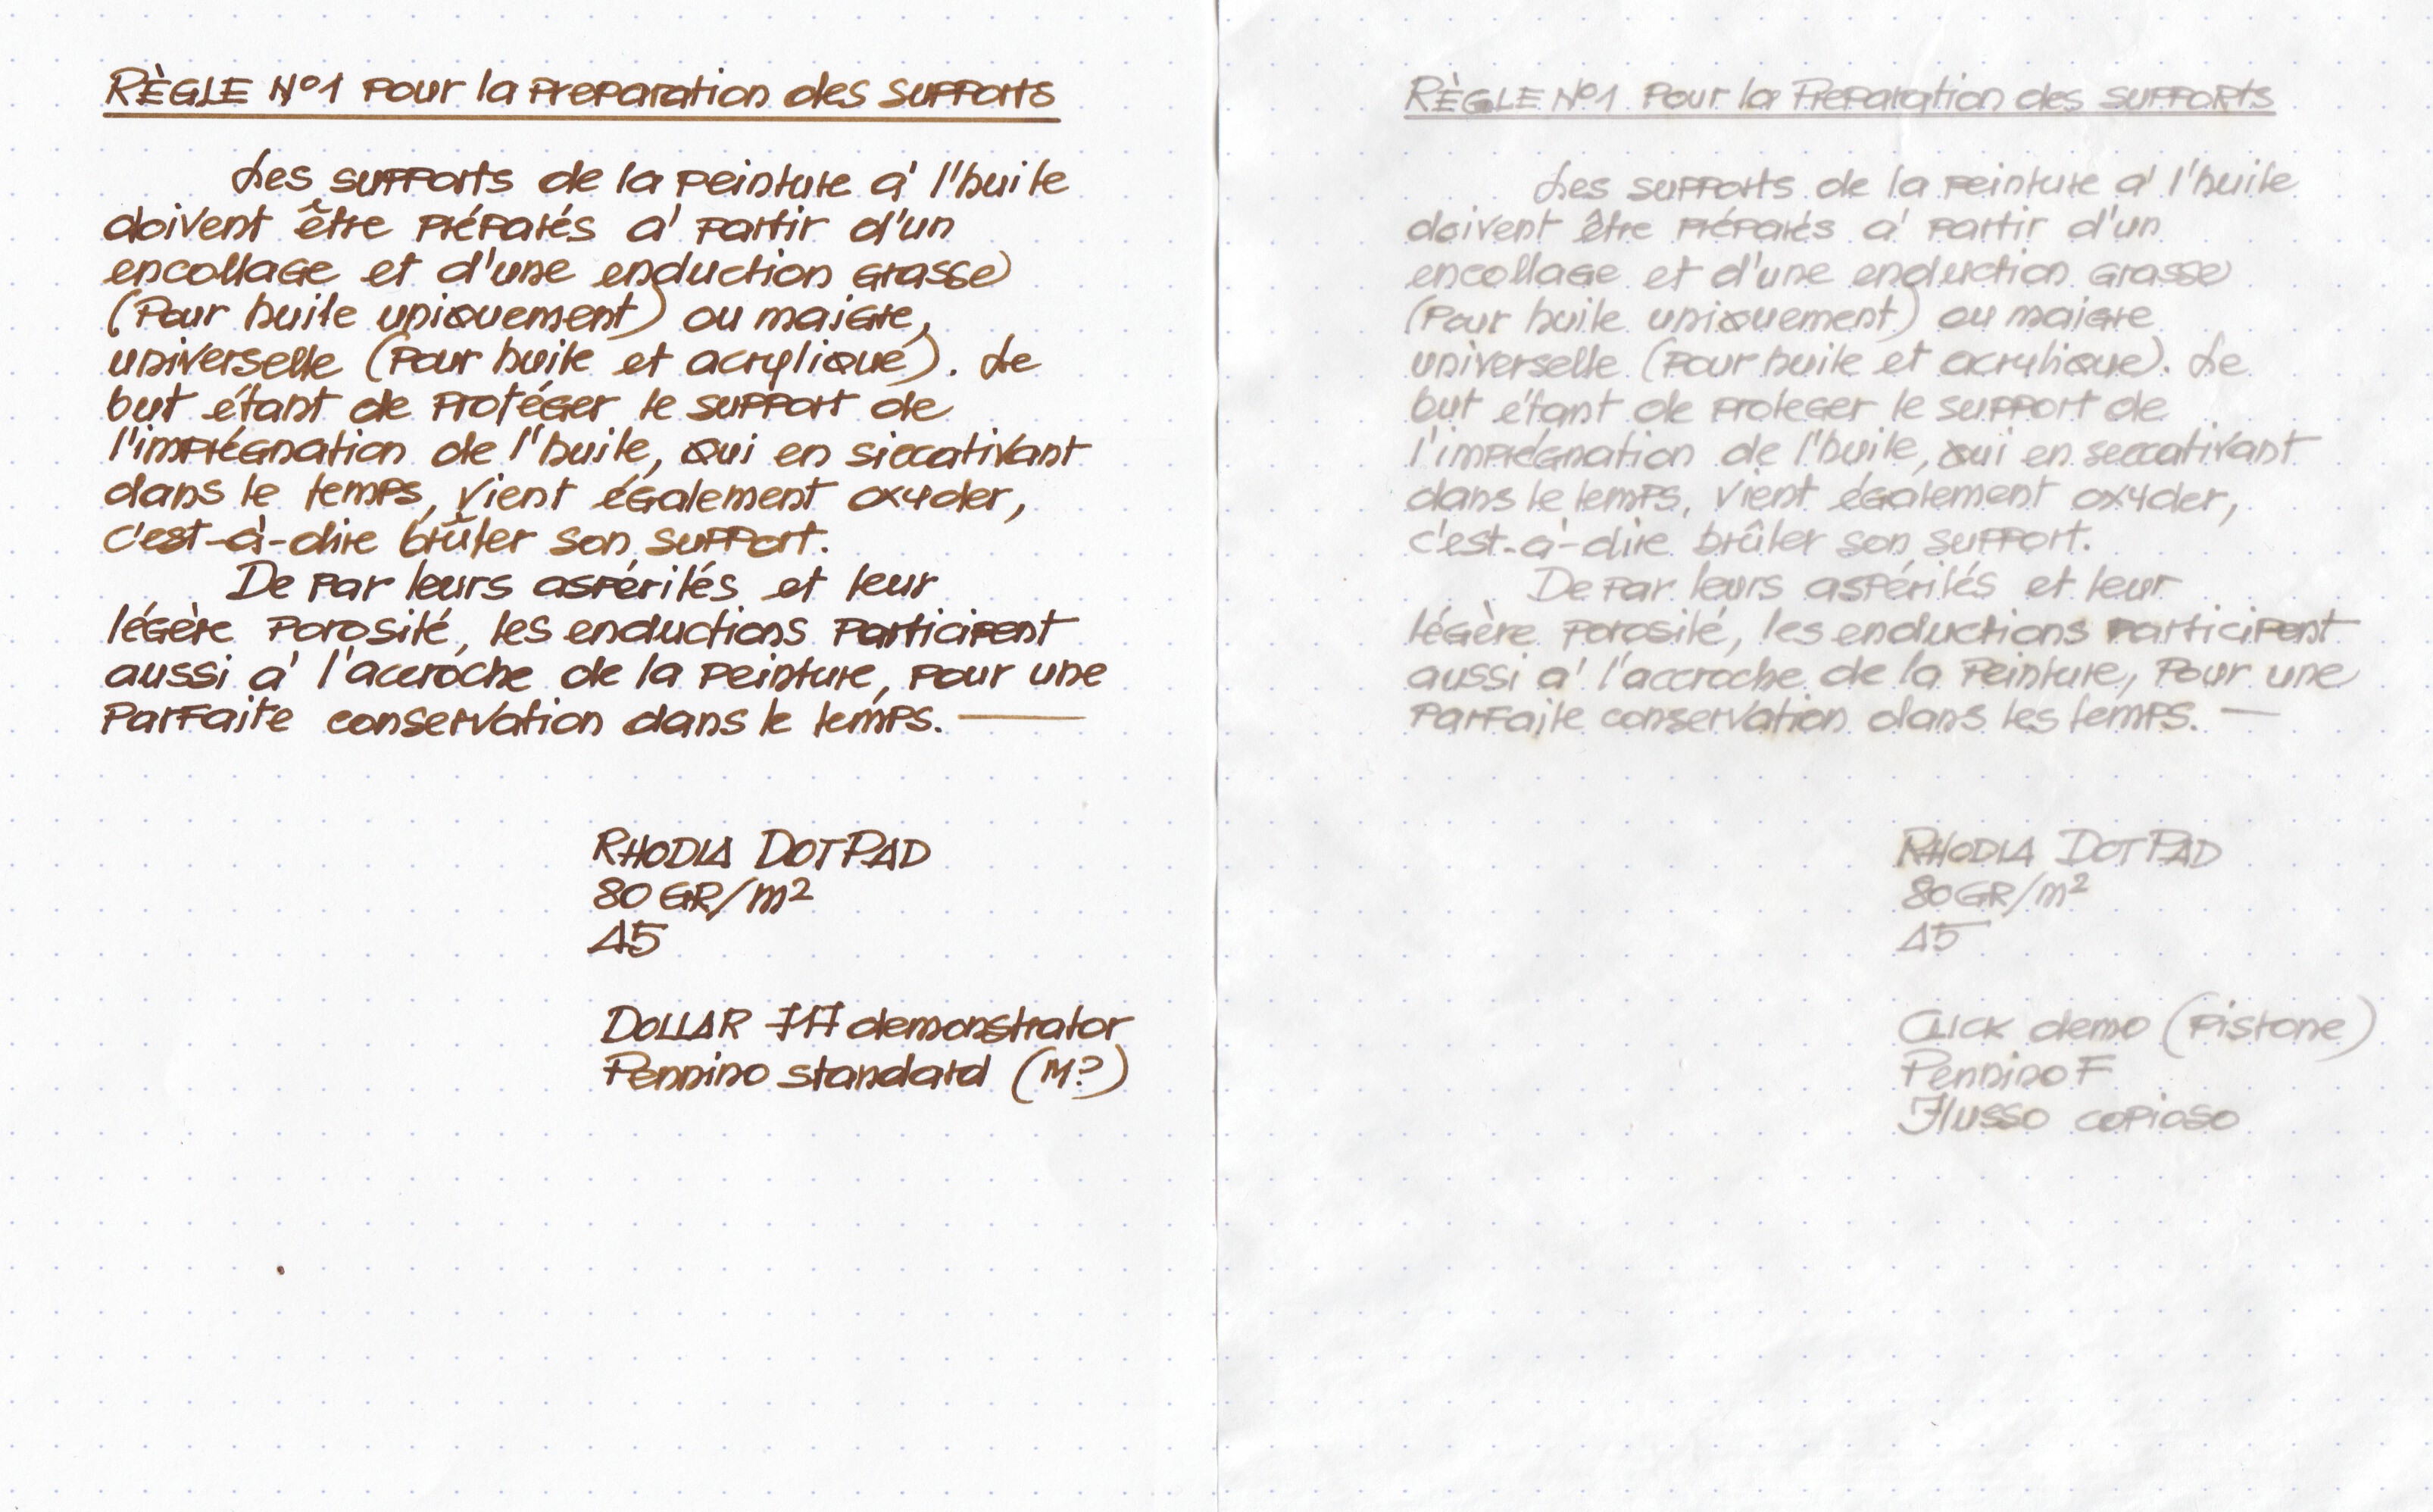 RÈGLE N°1 pour la preparation des supports
Les supports de la peinture à l'huile
doivent être préparés à partir d'un
encollage et d'une enduction grasse
(pour huile uniquement) ou maigre,
universelle (pour huile et acrylique). Le
but étant de protéger le support de
l'imprégnation de l'huile, qui en siccativant
dans le temps, vient également oxyder,
c'est-à-dire brûler son support.
De par leurs aspérités et leur
légère porosité, les enductions participent
aussi à l'accroche de la peinture, pour une
parfaite conservation dans le temps. —
RHODIA DOTPAD
80 GR/m²
A5
DOLLAR 717 demonstrator
Pennino standard (M?)
RÈGLE N°1 pour la Preparation des supports
Les supports de la peinture à l'huile
doivent être préparés à partir d'un
encollage et d'une enduction grasse
(pour huile uniquement) ou maigre
universelle (pour huile et acrylique). Le
but étant de proteger le support de
l'imprégnation de l'huile, qui en seccativant
dans le temps, vient également oxyder,
c'est-à-dire brûler son support.
De par leurs aspérités et leur
légère porosité, les enductions participent
aussi à l'accroche de la peinture, pour une
parfaite conservation dans les temps. —
RHODIA DOTPAD
80 GR/m²
A5
CLICK demo (pistone)
Pennino F
Flusso copioso